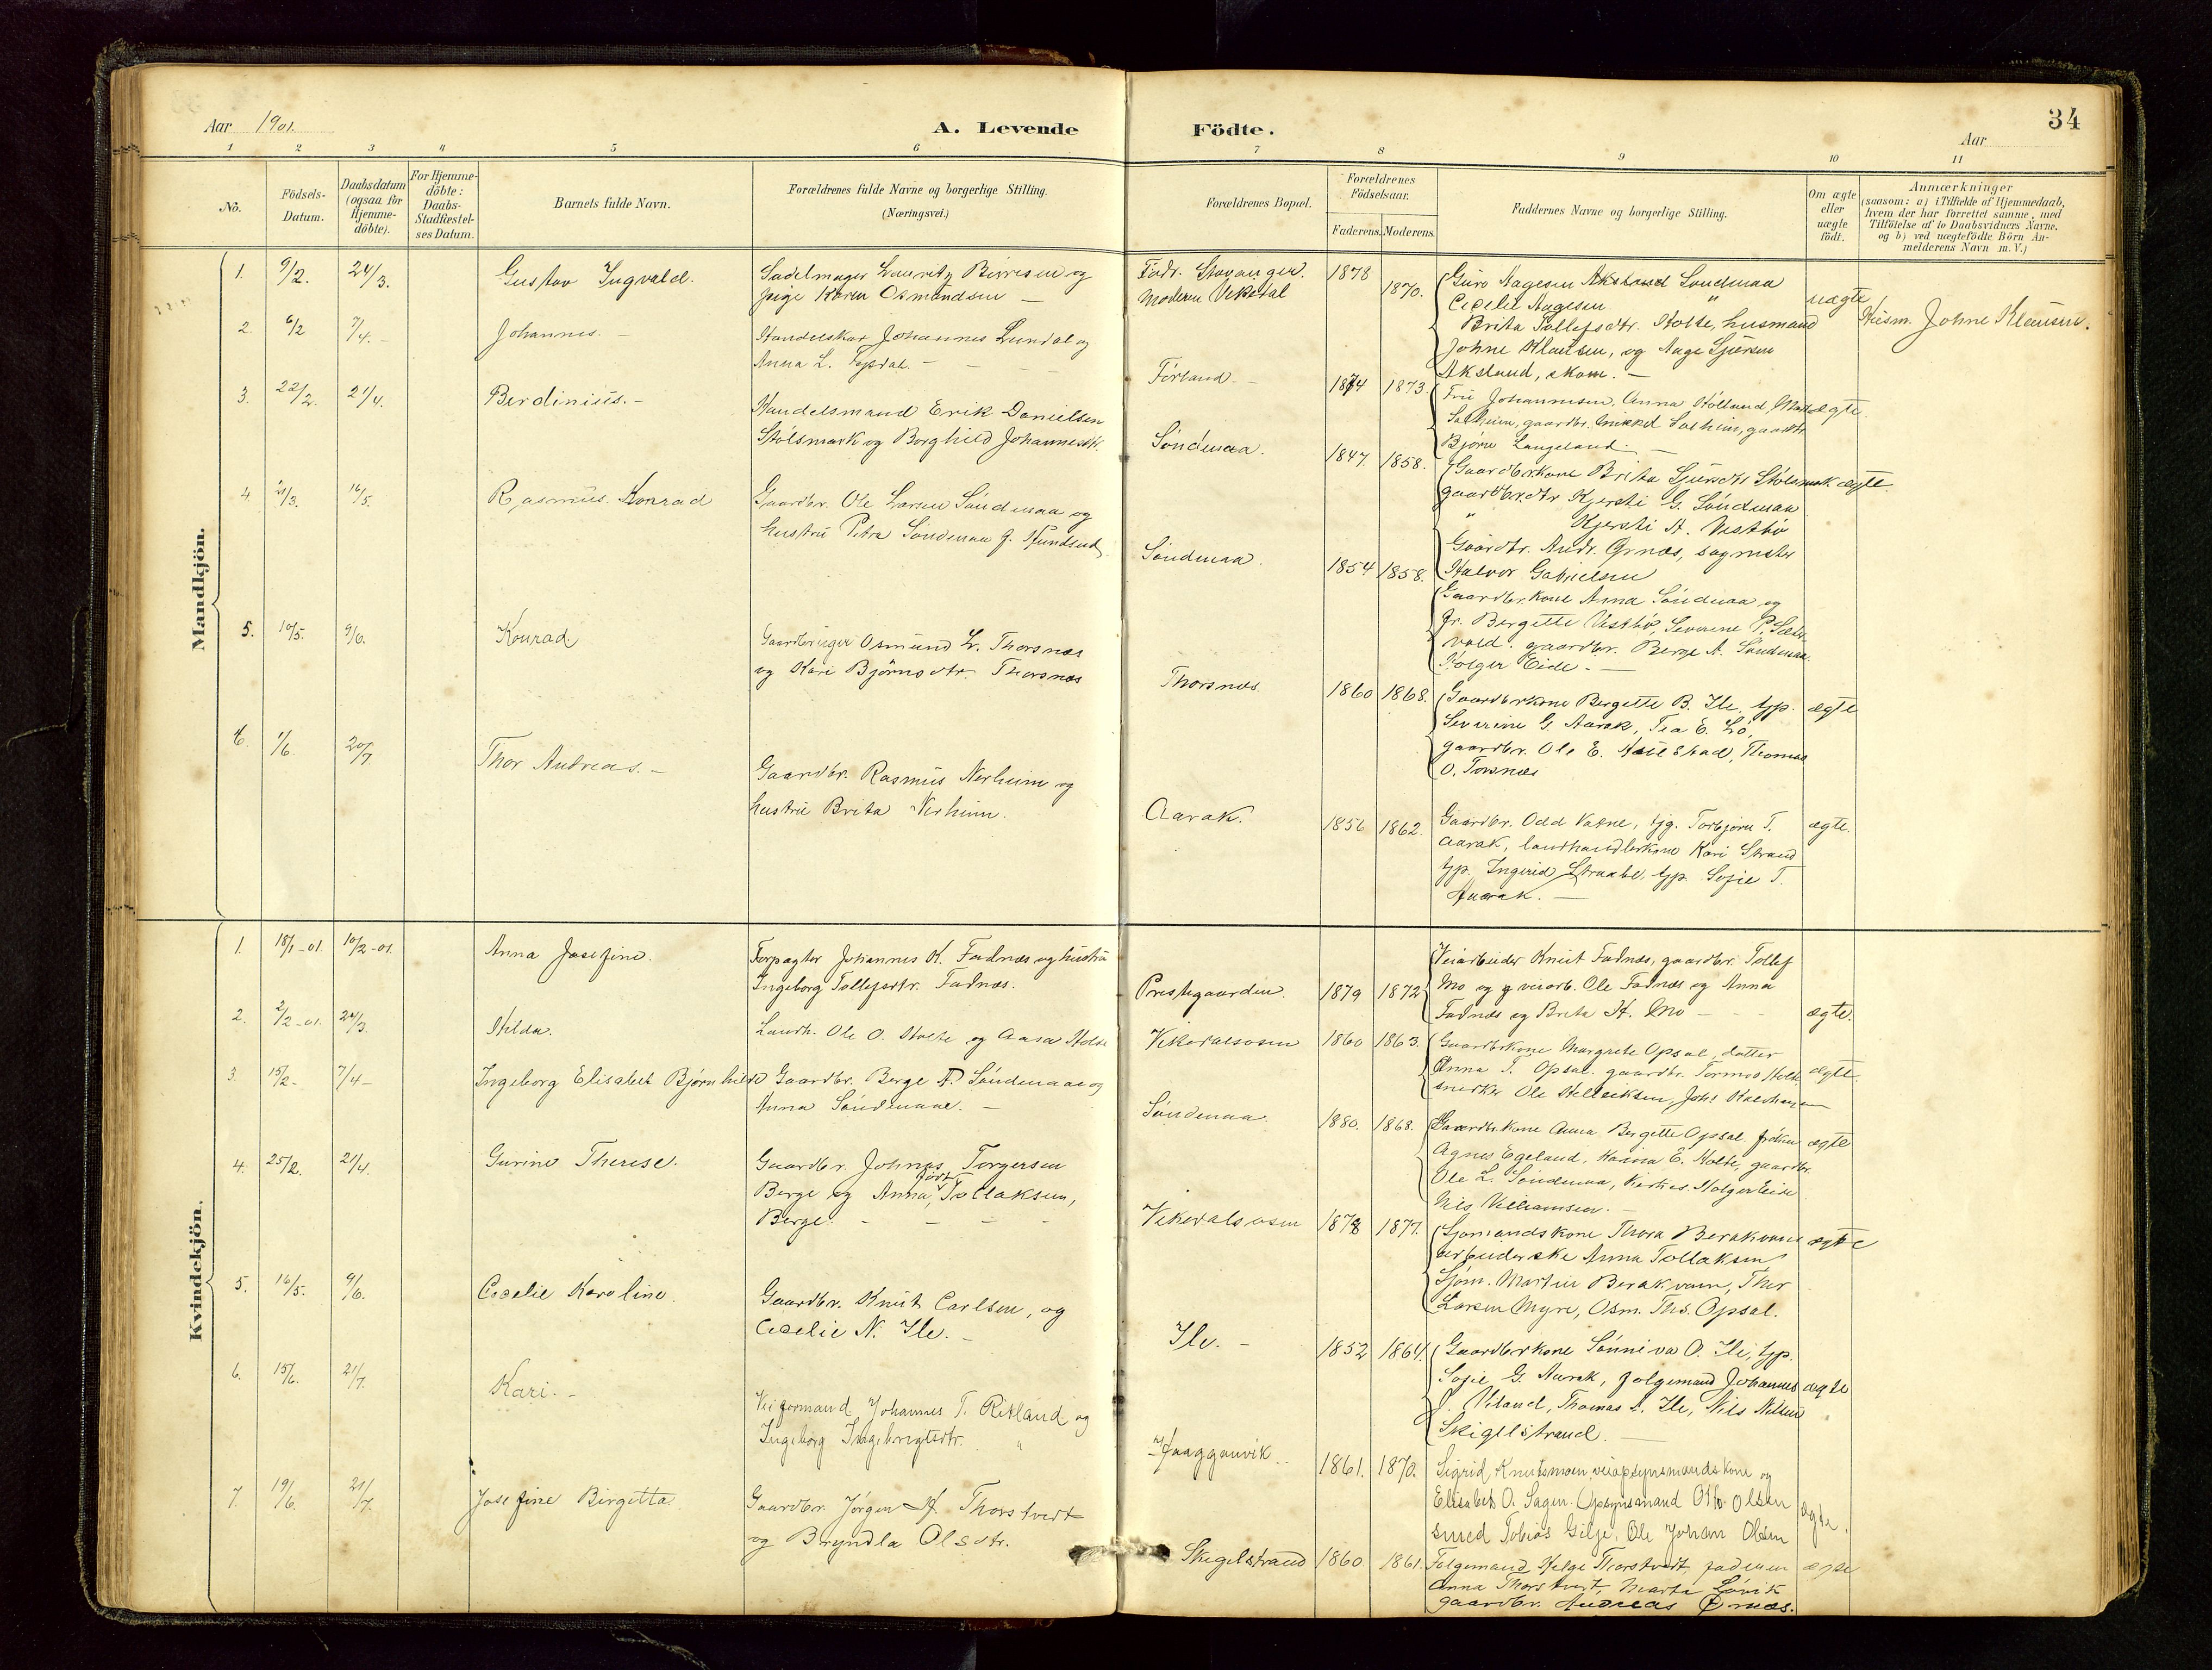 34
Aar 1901.
A. Levende Födte.
Aar
1 2 3 4 5 6 7 8 9 10 11
No.
Födsels-Datum.
Daabsdatum (ogsaa for Hjemme-döbte).
For Hjemme-döbte: Daabs-Stadfæstel-ses Datum.
Barnets fulde Navn.
Forældrenes fulde Navne og borgerlige Stilling.
(Næringsvei.)
Forældrenes Bopæl.
Forældrenes Födselsaar.
Faderens. Moderens.
Faddernes Navne og borgerlige Stilling.
Om ægte eller uægte födt.
Anmærkninger
(saasom: a) i Tilfælde af Hjemmedaab,
hvem der har forrettet samme, med
Tilföielse af to Daabsvidners Navne.
og b) ved uægtefödte Börn An-
melderens Navn m. V.)
Mandkjön.
1. 9/2. 24/3. Gustav Ingvald.
Sadelmager Lauritz Birresen og
pige Karen Osmundsen –
Fadr. Stavanger.
Moderen Vikedal
1878 1870.
Guro Aagesen Aksland Søndenaa
Cecelie Aagesen "
Brita Tollefsdtr. Holte, husmand
Johne Klausen, og Aage Sjursen
Aksland, skom. –
uægte
Husm. Johne Klausen.
2. 6/2 7/4. – Johannes. –
Handelskar Johannes Lundal og
Anna L. Fopdal. –
Førland. –
1874 1873.
Fru Johannesen, Anna Hølland,
Solheim, gaardbr. Mikkel Solheim, gaardbr.
Bjørn Langeland. –
ægte.
3. 22/2. 21/4. Berdinius. –
Handelsmand Erik Danielsen
Stølsmark og Borghild Johannesdtr.
Søndenaa.
1847. 1858.
Gaardbrkone Brita Sjursdtr Stølsmark
gaardbr.dtr Kjersti G. Søndenaa
" Kjersti A. Vestbø
Gaardbr. Andr. Ørnæs, sagmstr
Halvor Gabrielsen
ægte.
4 21/3. 16/5. Rasmus. Konrad
Gaardbr. Ole Larsen Søndenaa og
hustru Petra Søndenaa f.
Søndenaa.
1854 1858.
Gaardbr.kone Anna Søndenaa og
fr. Bergette Vestbø, Severine P.
gaardbr. Berge A. Søndenaa.
Holger Eide. –
5. 10/5. 9/6. Konrad
Gaardbruger Osmund L. Thorsnæs
og Kari Bjørnsdtr. Thorsnæs
Thorsnæs.
1860 1868.
Gaardbrkone Bergette B. Ile, tjp.
Severine G. Aarak, Tea E. Lø,
gaardbr. Ole E. Haustad, Thomas
O. Torsnæs
ægte
6. 1/6. 20/7. Thor Andreas. –
Gaardbr. Rasmus Nerheim og
hustru Brita Nerheim.
Aarak.
1856 1862.
Gaardbr. Odd Vatne, tjg. Torbjørn T.
Aarak, landhandlerkone Kari Strand
tjp. Ingerid Straabe, tjp. Sofie T.
Aarak. –
ægte.
Kvindekjön.
1. 18/1 – 01 10/2 – 01. Anna Josefine.
Forpagter Johannes K. Fadnæs og hustru
Ingeborg Tollefsdtr. Fadnæs.
Prestegaarden.
1879 1872
Veiarbeider Knut Fadnæs, gaardbr. Tollef
Mo og g veiarb. Ole Fadnæs og Anna
Fadnæs og Brita H. Mo –
ægte.
2. 2/2 – 01. 24/3. Hilda.
Landh. Ole O. Holte og Aasa Holte
Vikedalsosen
1860 1863.
Gaardbrkone Margrete Opsal, datter
Anna T. Opsal. gaardbr. Tormod Holte
snedker Ole Helleiksen, Johs
ægte.
3. 15/2 – 7/4 – Ingeborg Elisabet Bjørnhild
Gaardbr. Berge A. Søndenaa og
Anna Søndenaa. –
Søndenaa.
1880. 1868.
Gaardbr.kone Anna Bergette Opsal. frøken
Agnes Egeland, Hanna E. Holte, gaardbr.
Ole L. Søndenaa, Holger Eide
Nils Villiamsen. –
ægte
4. 25/2. 21/4. Gurine Therese.
Gaardbr. Johnas Torgersen
Berge og Anna, født Tollaksen,
Berge. –
Vikedalsosen
1878 1877.
Sjømandskone Thora Berakvam
arbeiderske Anna Tollaksen
Sjøm. Martin Berakvam, Thor
Larsen Myre, Osm. Ths. Opsal.
ægte
5. 16/5. 9/6. Cecelie Karoline.
Gaardbr. Knut Carlsen, og
Cecelie N. Ile. –
Ile. –
1852 1864.
Gaardbrkone Sønniva O. Ile, tjp.
Sofie G. Aarak, følgemand Johannes
J. Viland, Thomas A. Ile, Nils Nilsen
Skigelstrand. –
ægte
6. 15/6. 21/7. Kari. –
Veiformand Johannes T. Ritland og
Ingeborg Ingebrigtsdtr. "
1861. 1870.
Sigrid Knutsmoen veiopsynsmandskone og
Elisabet O. Sagen. Opsynsmand Ole Olsen
smed Tobias Gilje. Ole Johan Olsen
ægte.
7. 19/6. 21/7. Josefine Birgetta
Gaardbr. Jørgen H. Thorstvedt
og Bryndla Olsdtr.
Skigelstrand
1860 1861.
Følgemand Helge Thorstvedt,
Anna Thorstvedt, Marta Løvik
gaardbr. Andreas Ørnæs.
ægte